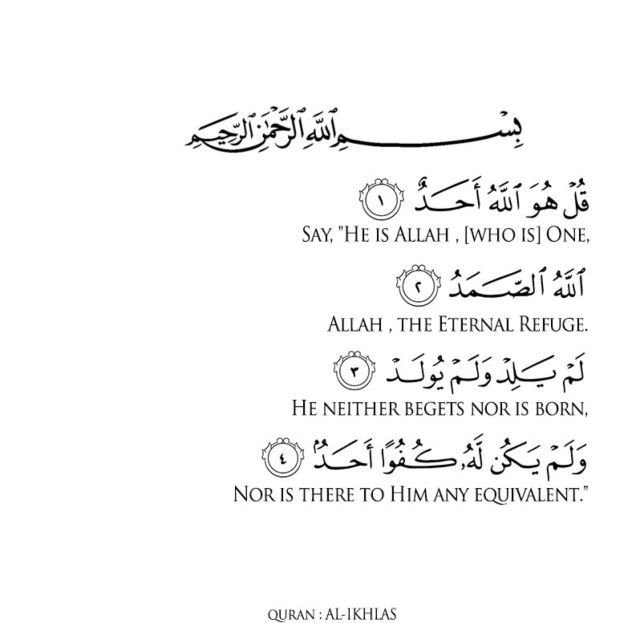 بِسْمِ ٱللَّهِ ٱلرَّحْمَٰنِ ٱلرَّحِيمِ
قُلْ هُوَ ٱللَّهُ أَحَدٌ ١
SAY, "HE IS ALLAH , [WHO IS] ONE,
ٱللَّهُ ٱلصَّمَدُ ٢
ALLAH , THE ETERNAL REFUGE.
لَمْ يَلِدْ وَلَمْ يُولَدْ ٣
HE NEITHER BEGETS NOR IS BORN,
وَلَمْ يَكُن لَّهُۥ كُفُوًا أَحَدٌۢ ٤
NOR IS THERE TO HIM ANY EQUIVALENT."
QURAN : AL-IKHLAS